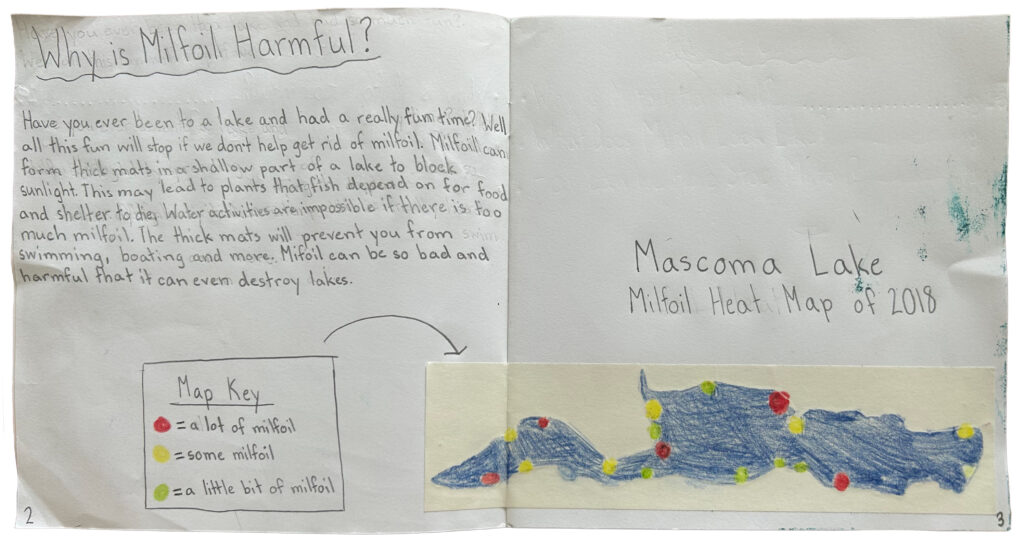 Why is Milfoil Harmful?
Have you ever been to a lake and had a really fun time? Well
all this fun will stop if we don't help get rid of milfoil. Milfoil can
form thick mats in a shallow part of a lake to block
sunlight. This may lead to plants that fish depend on for food
and shelter to die. Water activities are impossible if there is too
much milfoil. The thick mats will prevent you from
swimming, boating and more. Mifoil can be so bad and
harmful that it can even destroy lakes.
Map Key
= a lot of milfoil
= some milfoil
= a little bit of milfoil
2
Mascoma Lake
Milfoil Heat Map of 2018
3